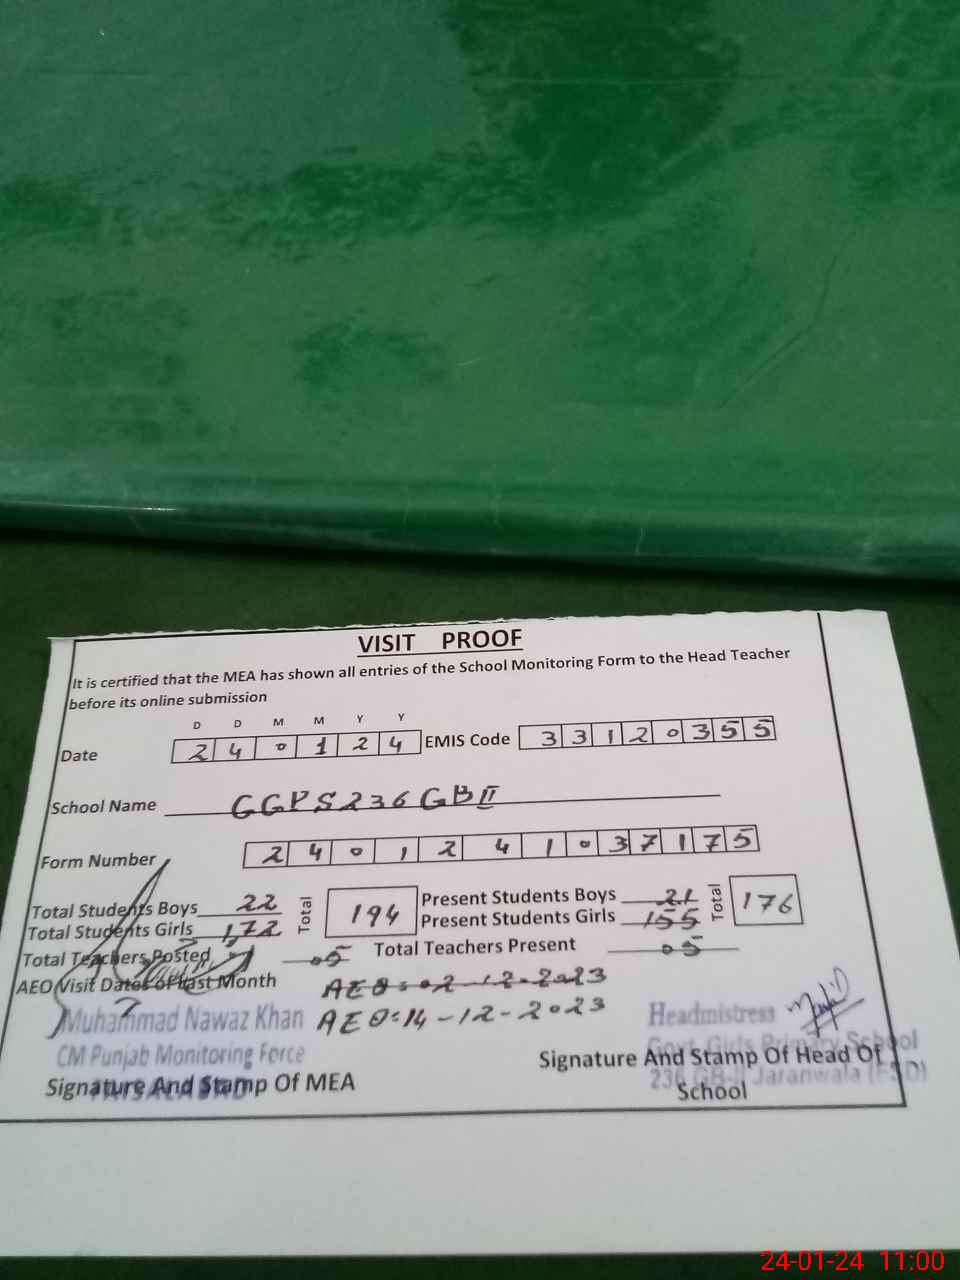 VISIT PROOF
It is certified that the MEA has shown all entries of the School Monitoring Form to the Head Teacher
before its online submission
D D M M Y Y
Date 2 4 0 1 2 4 EMIS Code 3 3 1 2 0 3 5 5
School Name GGPS 236 GB II
Form Number 2 4 0 1 2 4 1 0 3 7 1 7 5
Total Students Boys 22 Total 194 Present Students Boys 21 Total 176
Total Students Girls 172 Present Students Girls 155
Total Teachers Posted 05 Total Teachers Present 05
AEO Visit Dates of Last Month AEO = 02-12-2023
Muhammad Nawaz Khan AEO = 14-12-2023 Headmistress
CM Punjab Monitoring Force Govt. Girls Primary School
Signature And Stamp Of MEA Signature And Stamp Of Head Of
FAISALABAD 236 GB-II Jaranwala (FSD)
School
24-01-24 11:00